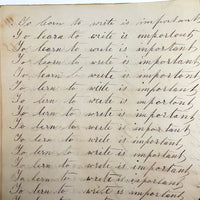 To learn to write is important,
To learn to write is important
To learn to write is important,
To learn to write is important,
To learn to write is important,
To lern to write is important
To lern to write is important,
To lern to write is important,
To lern to write is important,
To lern to write is important,
To lern to write is important,
To lern to write is important,
To lern to write is important,
To lern to write is important
To lern to write is important,